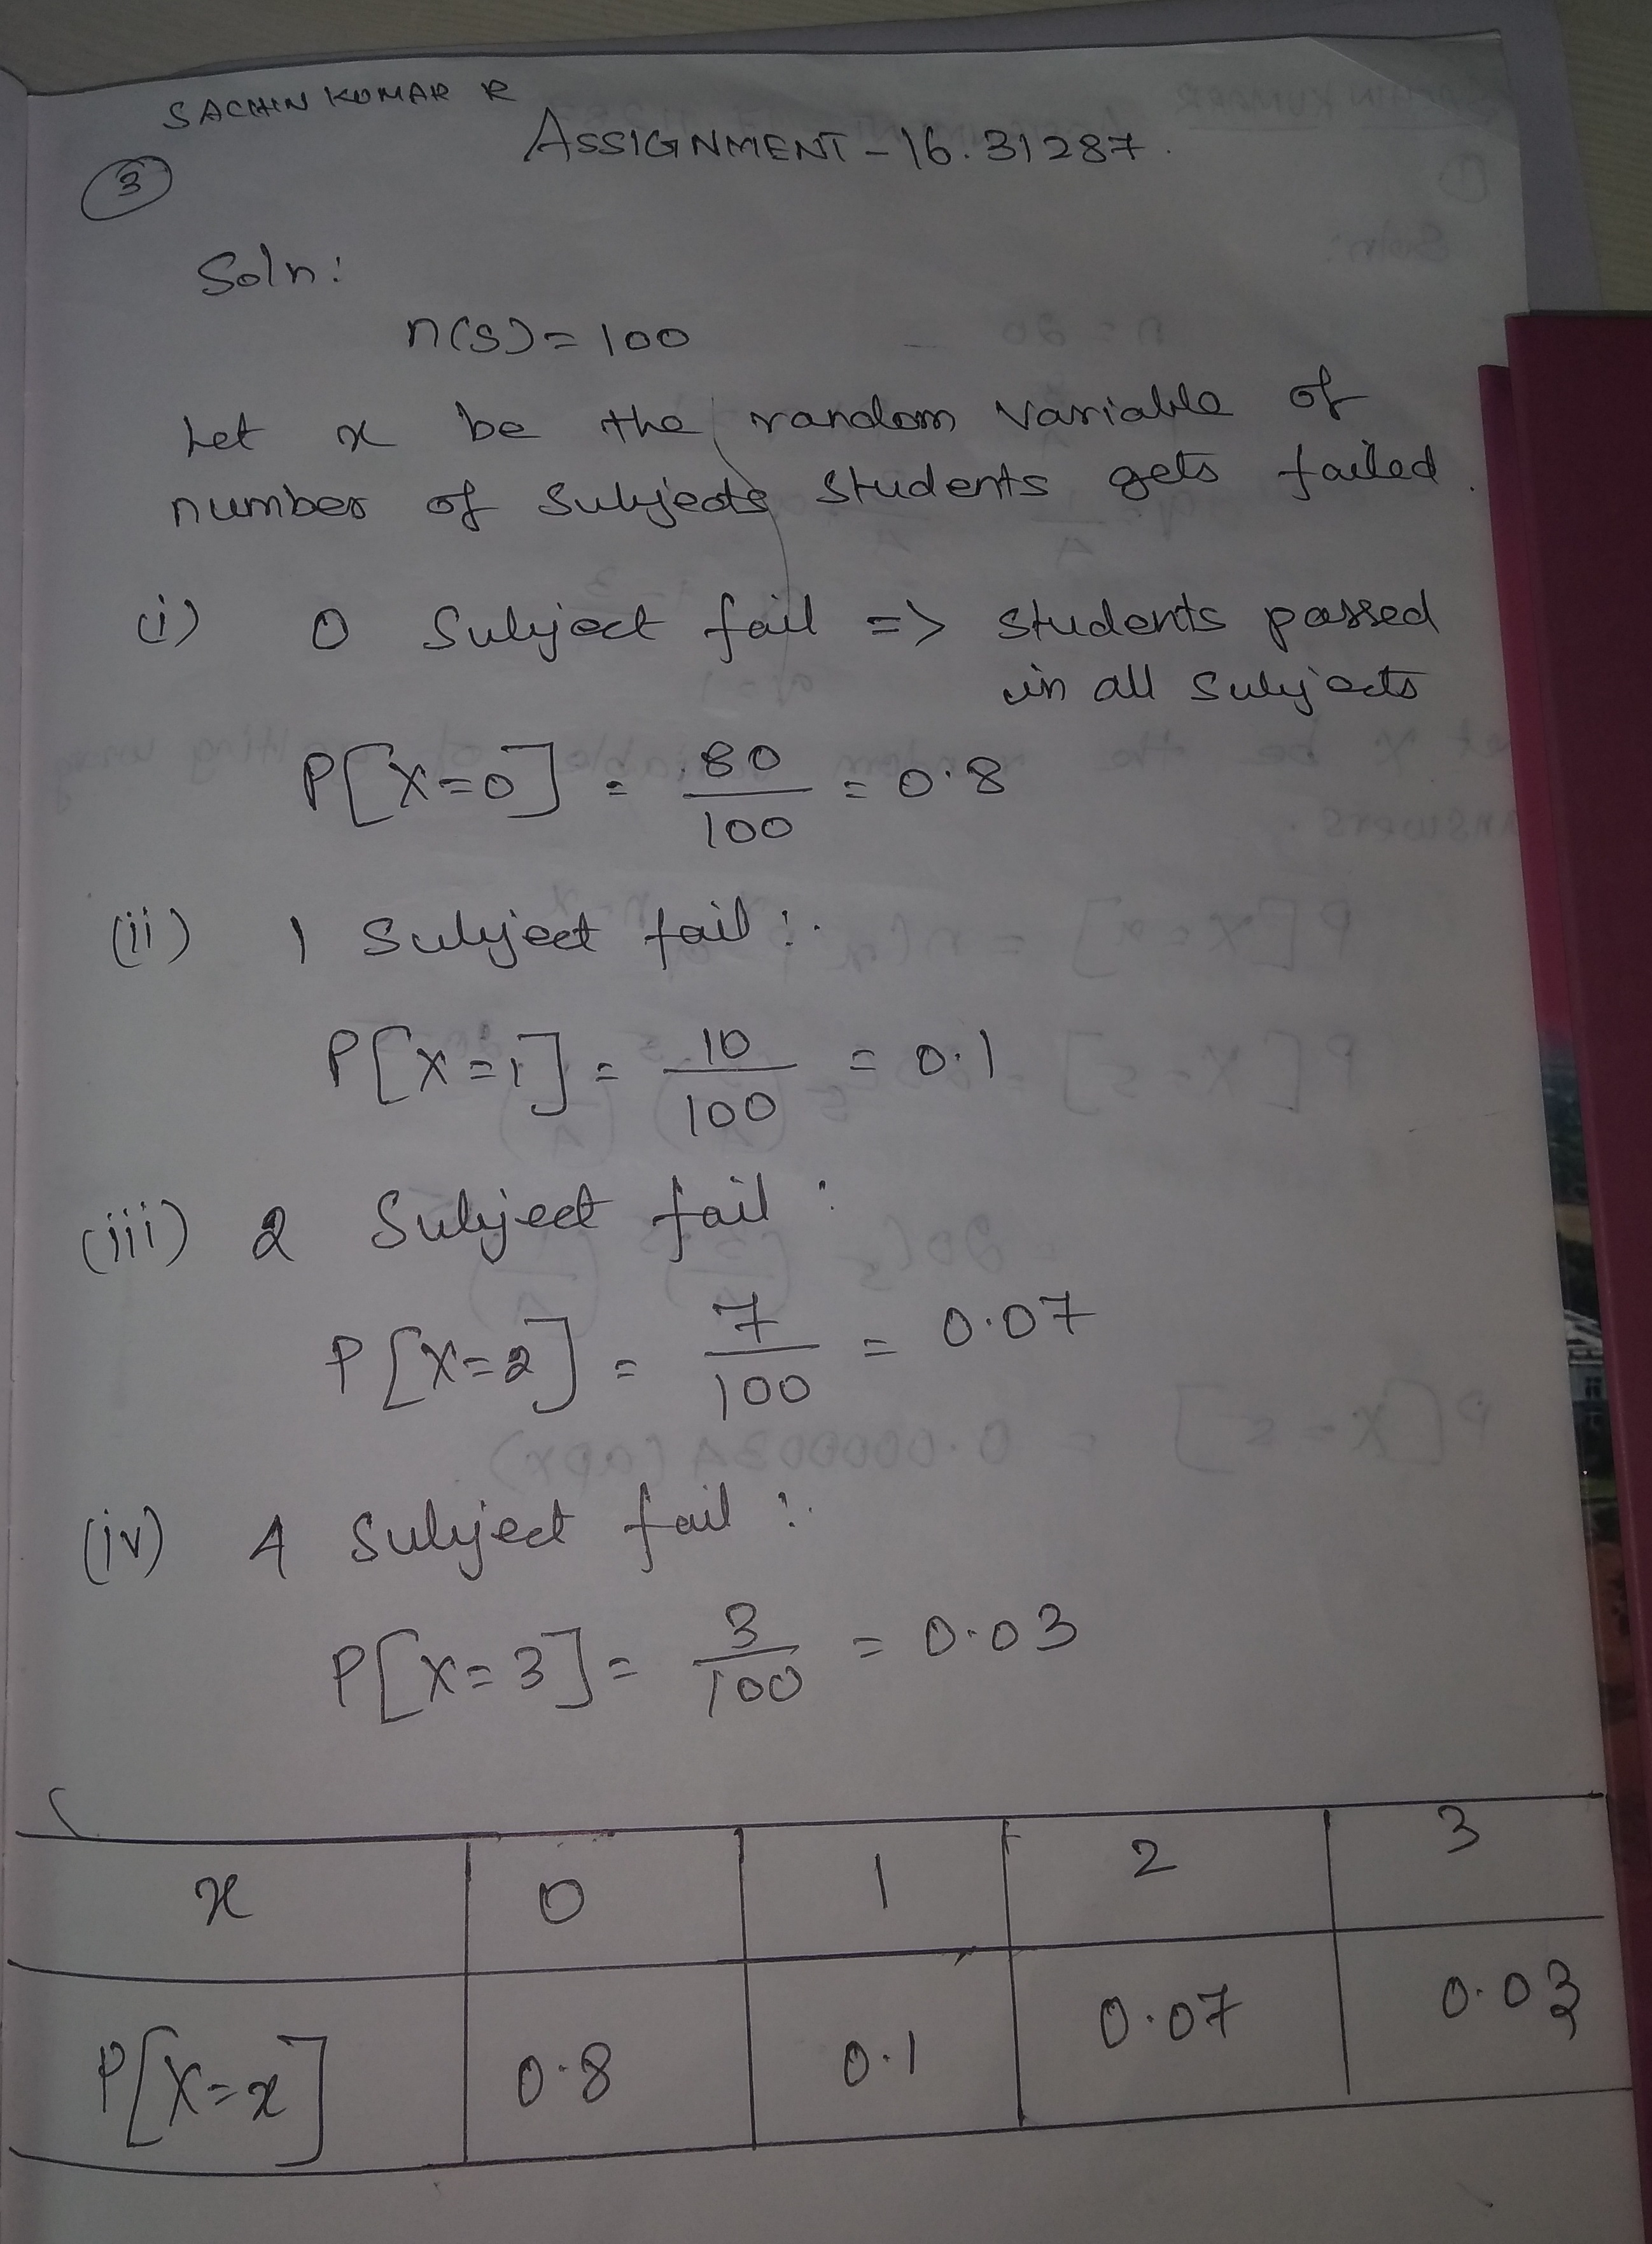 SACHIN KUMAR R
ASSIGNMENT-16.31287.
③
Soln:
n(S)=100
Let x be the random variable of
number of subjects students gets failed.
(i) 0 Subject fail => students passed
in all subjects
P[X=0] = 80/100 = 0.8
(ii) 1 Subject fail:
P[X=1] = 10/100 = 0.1
(iii) 2 Subject fail:
P[X=2] = 7/100 = 0.07
(iv) 1 Subject fail:
P[X=3] = 3/100 = 0.03
x 0 1 2 3
P[X=x] 0.8 0.1 0.07 0.03